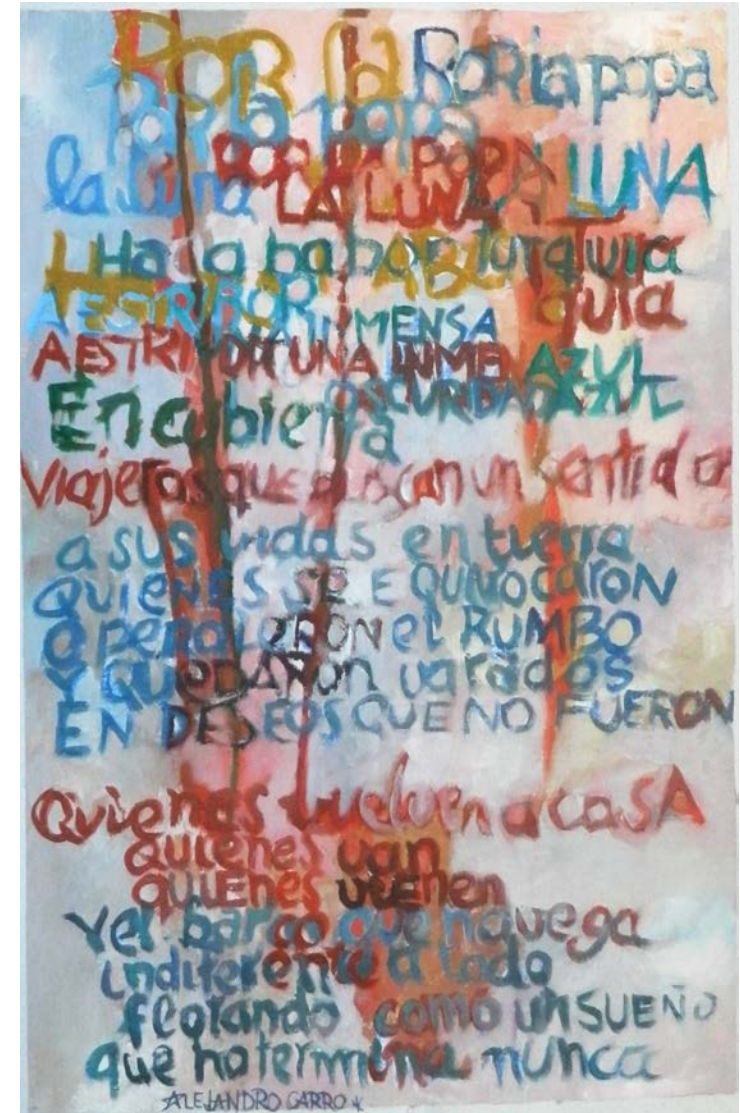 POR la POR la popa
POR la popa
la luna POR LA POPA LUNA
LA LUNA
Hacia babor turquia
A ESTRIBOR guia
UNA INMENSA
A ESTRIBOR UNA INMEN AZUL
OSCURIDAD AZUL
En cubierta
Viajeros que buscan un sentido
a sus vidas en tierra
QUIENES SE EQUIVOCARON
O PERDIERON el RUMBO
Y QUEDARON varados
EN DESEOS QUE NO FUERON
Quienes vuelven a casA
quienes van
quienes vienen
y el barco que navega
indiferente a todo
flotando como un SUEÑO
que no termina nunca
ALEJANDRO GARRO